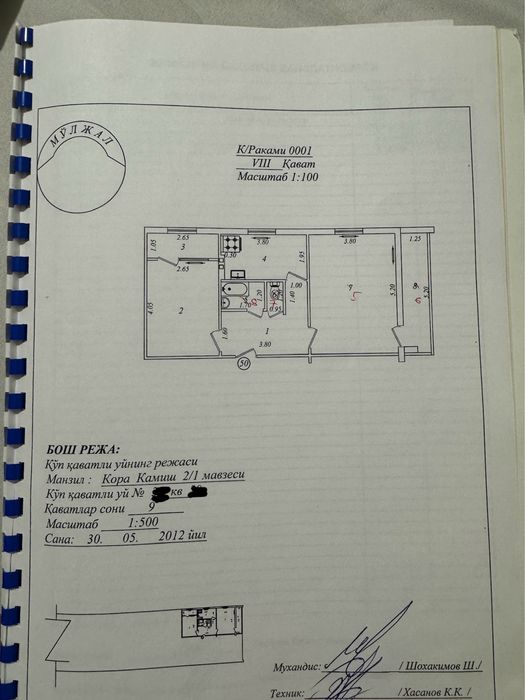 МЎЛЖАЛ
К/Раками 0001
VIII Қават
Масштаб 1:100
2.65
3.80
3.80
1.25
1.05
3
4
1.95
0.30
2.65
1.00
4.05
2
1.20
1.40
5
5.20
6
5.20
1.70
0.95
1.60
1
3.80
50
БОШ РЕЖА:
Кўп қаватли уйнинг режаси
Манзил : Кора Камиш 2/1 мавзеси
Кўп қаватли уй № кв
Қаватлар сони 9
Масштаб 1:500
Сана: 30. 05. 2012 йил
Мухандис: / Шохакимов Ш./
Техник: / Хасанов К.К. /